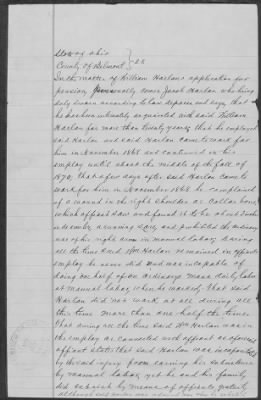 State of Ohio
County of Belmont } SS
In the matter of William Harlan's application for
pension, Personally came Jacob Harlan who being
duly sworn according to law deposes and says that
he has been intimately acquainted with said William
Harlan for more than twenty years, that he employed
said Harlan and said Harlan came to work for
him in November 1868 and continued in his
employ until about the middle of the fall of
1870, that a few days after said Harlan came to
work for him in November 1868 he complained
of a wound in the right shoulder or collar bone,
which affiant saw and found it to be about
a running sore, and prohibited the ordinary
use of his right arm in manual labor, during
all the time said Wm Harlan remained in affiants
employ he never did and was incapable of
doing one half of an ordinary mans daily labor
at manual labor, when he worked, that said
Harlan did not work at all during all
the time more than one half the time
That during all the time said Wm Harlan was in
the employ or connected with affiant as aforesaid
affiant states that said Harlan was incapacitated
by his said injury from earning his subsistence
by manual labor, yet he and his family
did subsist by means of affiants
although said Harlan was